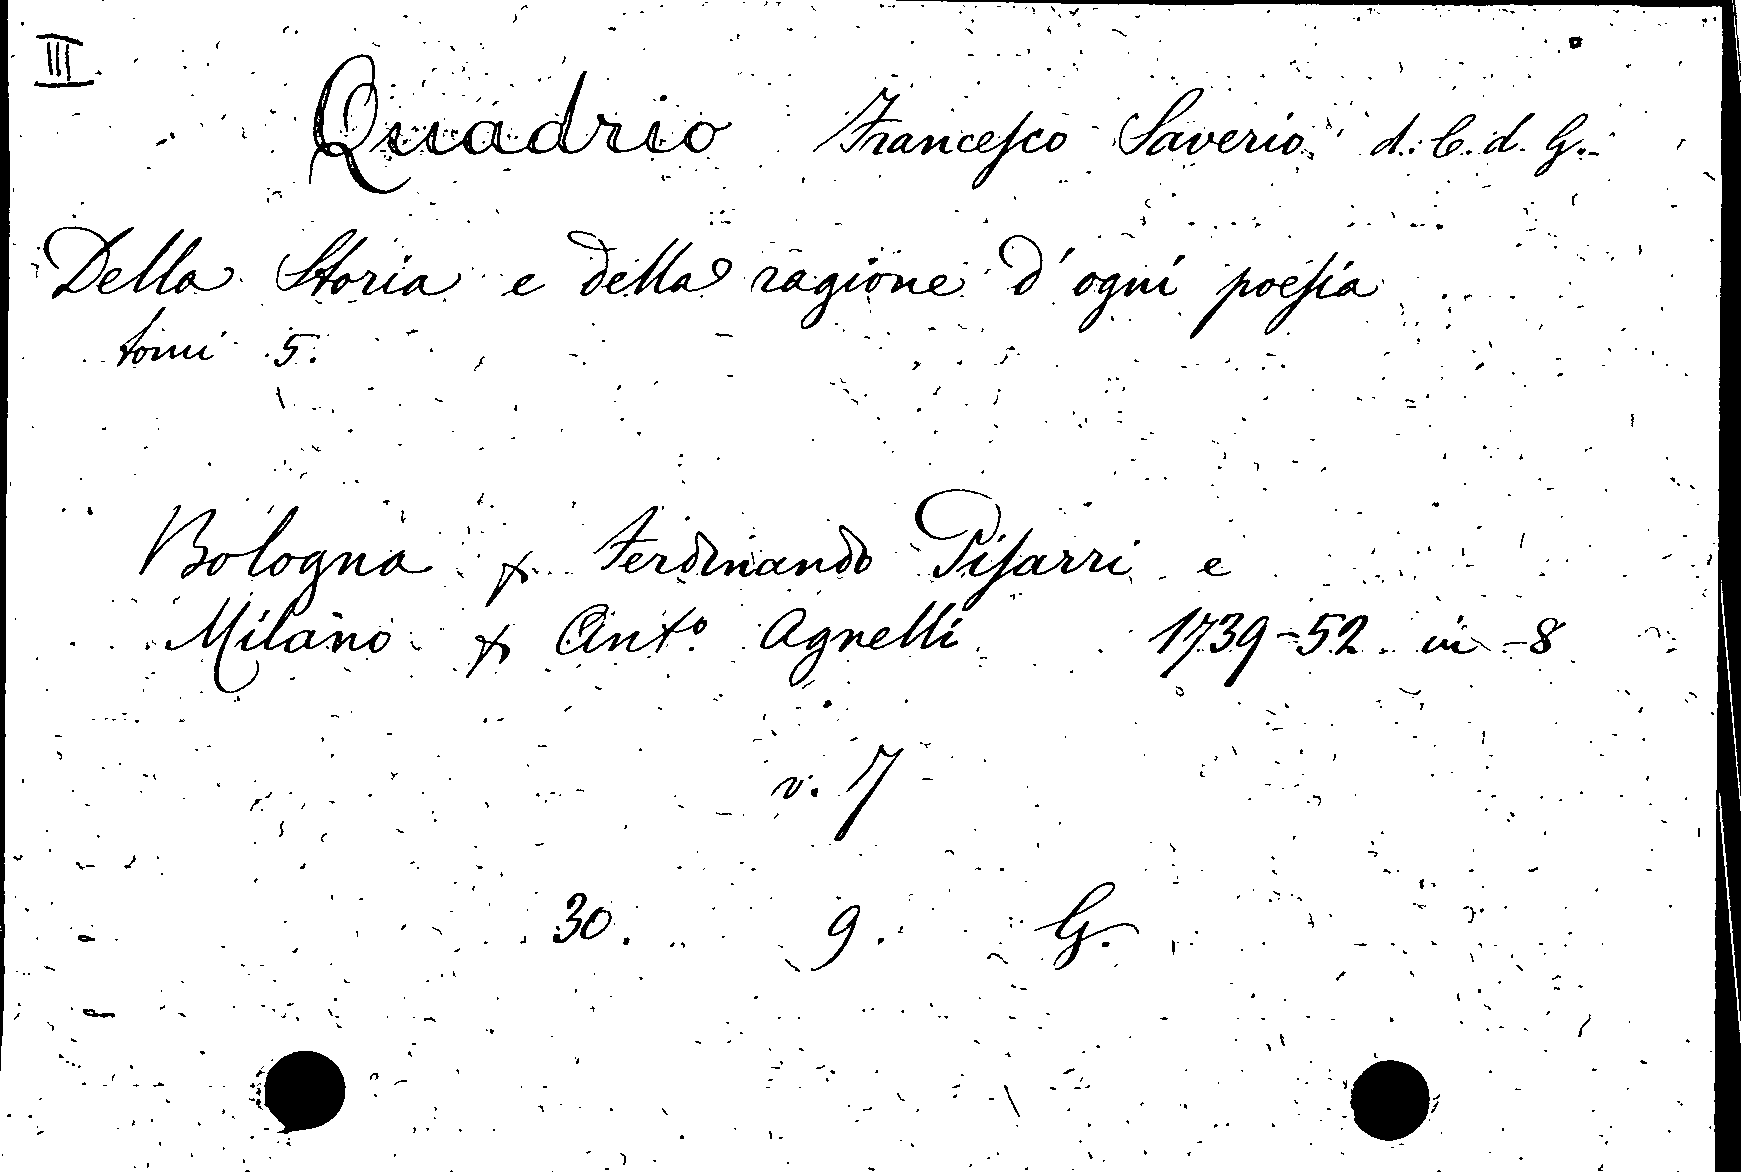 III
Quadrio Francesco Saverio d. C. d. G.
Della Storia e della ragione d'ogni poesia
tomi 5.
Bologna p Ferdinando Pisarri e
Milano p Ant.o Agnelli 1739-52 in -8
v. 7
30. 9. G.